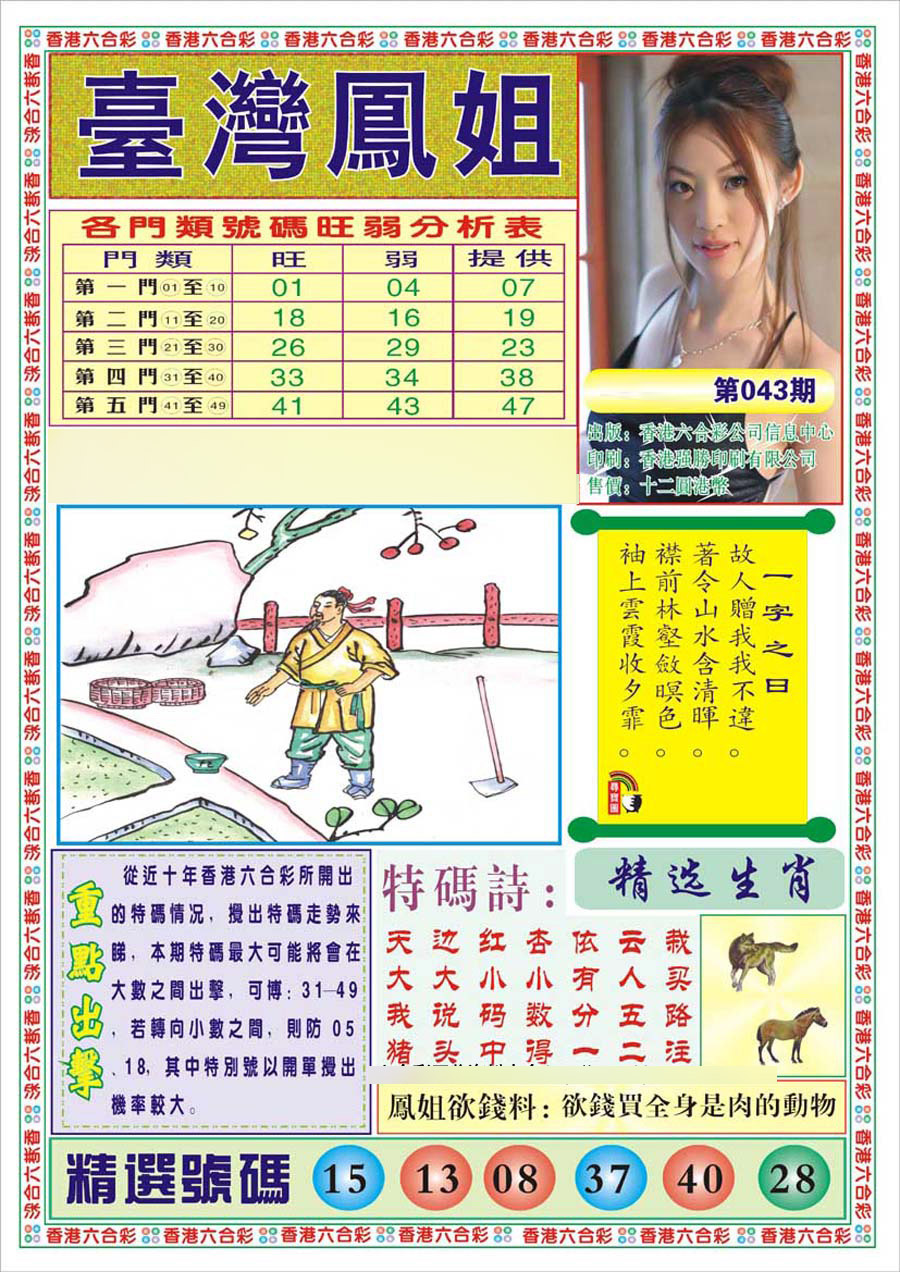 香港六合彩 香港六合彩 香港六合彩 香港六合彩 香港六合彩 香港六合彩 香港六合彩
臺灣鳳姐
各門類號碼旺弱分析表
門類 旺 弱 提供
第一門01至10 01 04 07
第二門11至20 18 16 19
第三門21至30 26 29 23
第四門31至40 33 34 38
第五門41至49 41 43 47
第043期
出版：香港六合彩公司信息中心
印刷：香港强勝印刷有限公司
售價：十二圓港幣
一字之曰
故人贈我我不違。
著令山水含清暉。
襟前林壑斂暝色。
袖上雲霞收夕霏。
尋寶圖
重點出擊
從近十年香港六合彩所開出
的特碼情况，攪出特碼走勢來
睇，本期特碼最大可能將會在
大數之間出擊，可博：31—49
，若轉向小數之間，則防 05
、18，其中特別號以開單攪出
機率較大。
特碼詩：
天边红杏依云栽
大大小小有人买
我说码数分五路
猪头中得一二注
精选生肖
鳳姐欲錢料：欲錢買全身是肉的動物
精選號碼 15 13 08 37 40 28
香港六合彩 香港六合彩 香港六合彩 香港六合彩 香港六合彩 香港六合彩 香港六合彩